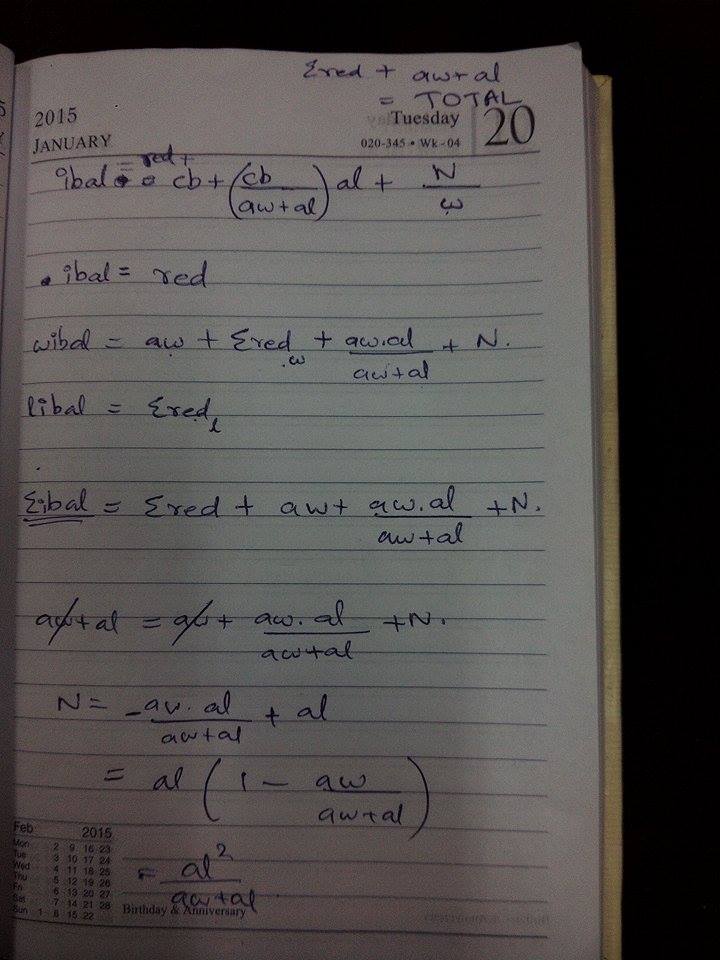 Σred + aw+al
= TOTAL
2015
JANUARY
Tuesday
020-345 • Wk - 04
20
= red +
ibal = cb + (cb / (aw+al)) al + N / w
ibal = red
wibal = aw + Σred_w + aw.al / (aw+al) + N.
libal = Σred_l
Σibal = Σred + aw + aw.al / (aw+al) + N.
aw+al = aw + aw.al / (aw+al) + N.
N = -aw.al / (aw+al) + al
= al (1 - aw / (aw+al))
= al² / (aw+al)
Feb 2015
Mon 2 9 16 23
Tue 3 10 17 24
Wed 4 11 18 25
Thu 5 12 19 26
Fri 6 13 20 27
Sat 7 14 21 28
Sun 1 8 15 22
Birthday & Anniversary